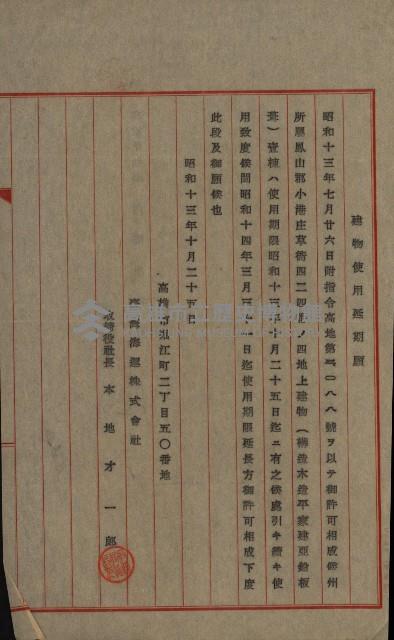 建物使用延期願
昭和十三年七月廿六日附指令高地第三〇八八號ヲ以テ御許可相成候州
所屬鳳山郡小港庄草衙四二四番ノ四地上建物(構造木造平家建亞鉛板
葺)壹棟ハ使用期限昭和十三年十月二十五日迄ニ有之候處引キ續キ使
用致度候間昭和十四年三月三十一日迄使用期限延長方御許可相成下度
此段及御願候也
昭和十三年十月二十五日
高雄市入江町二丁目五〇番地
海運株式會社
取締役社長 本地才一郎
高雄市立歷史博物館